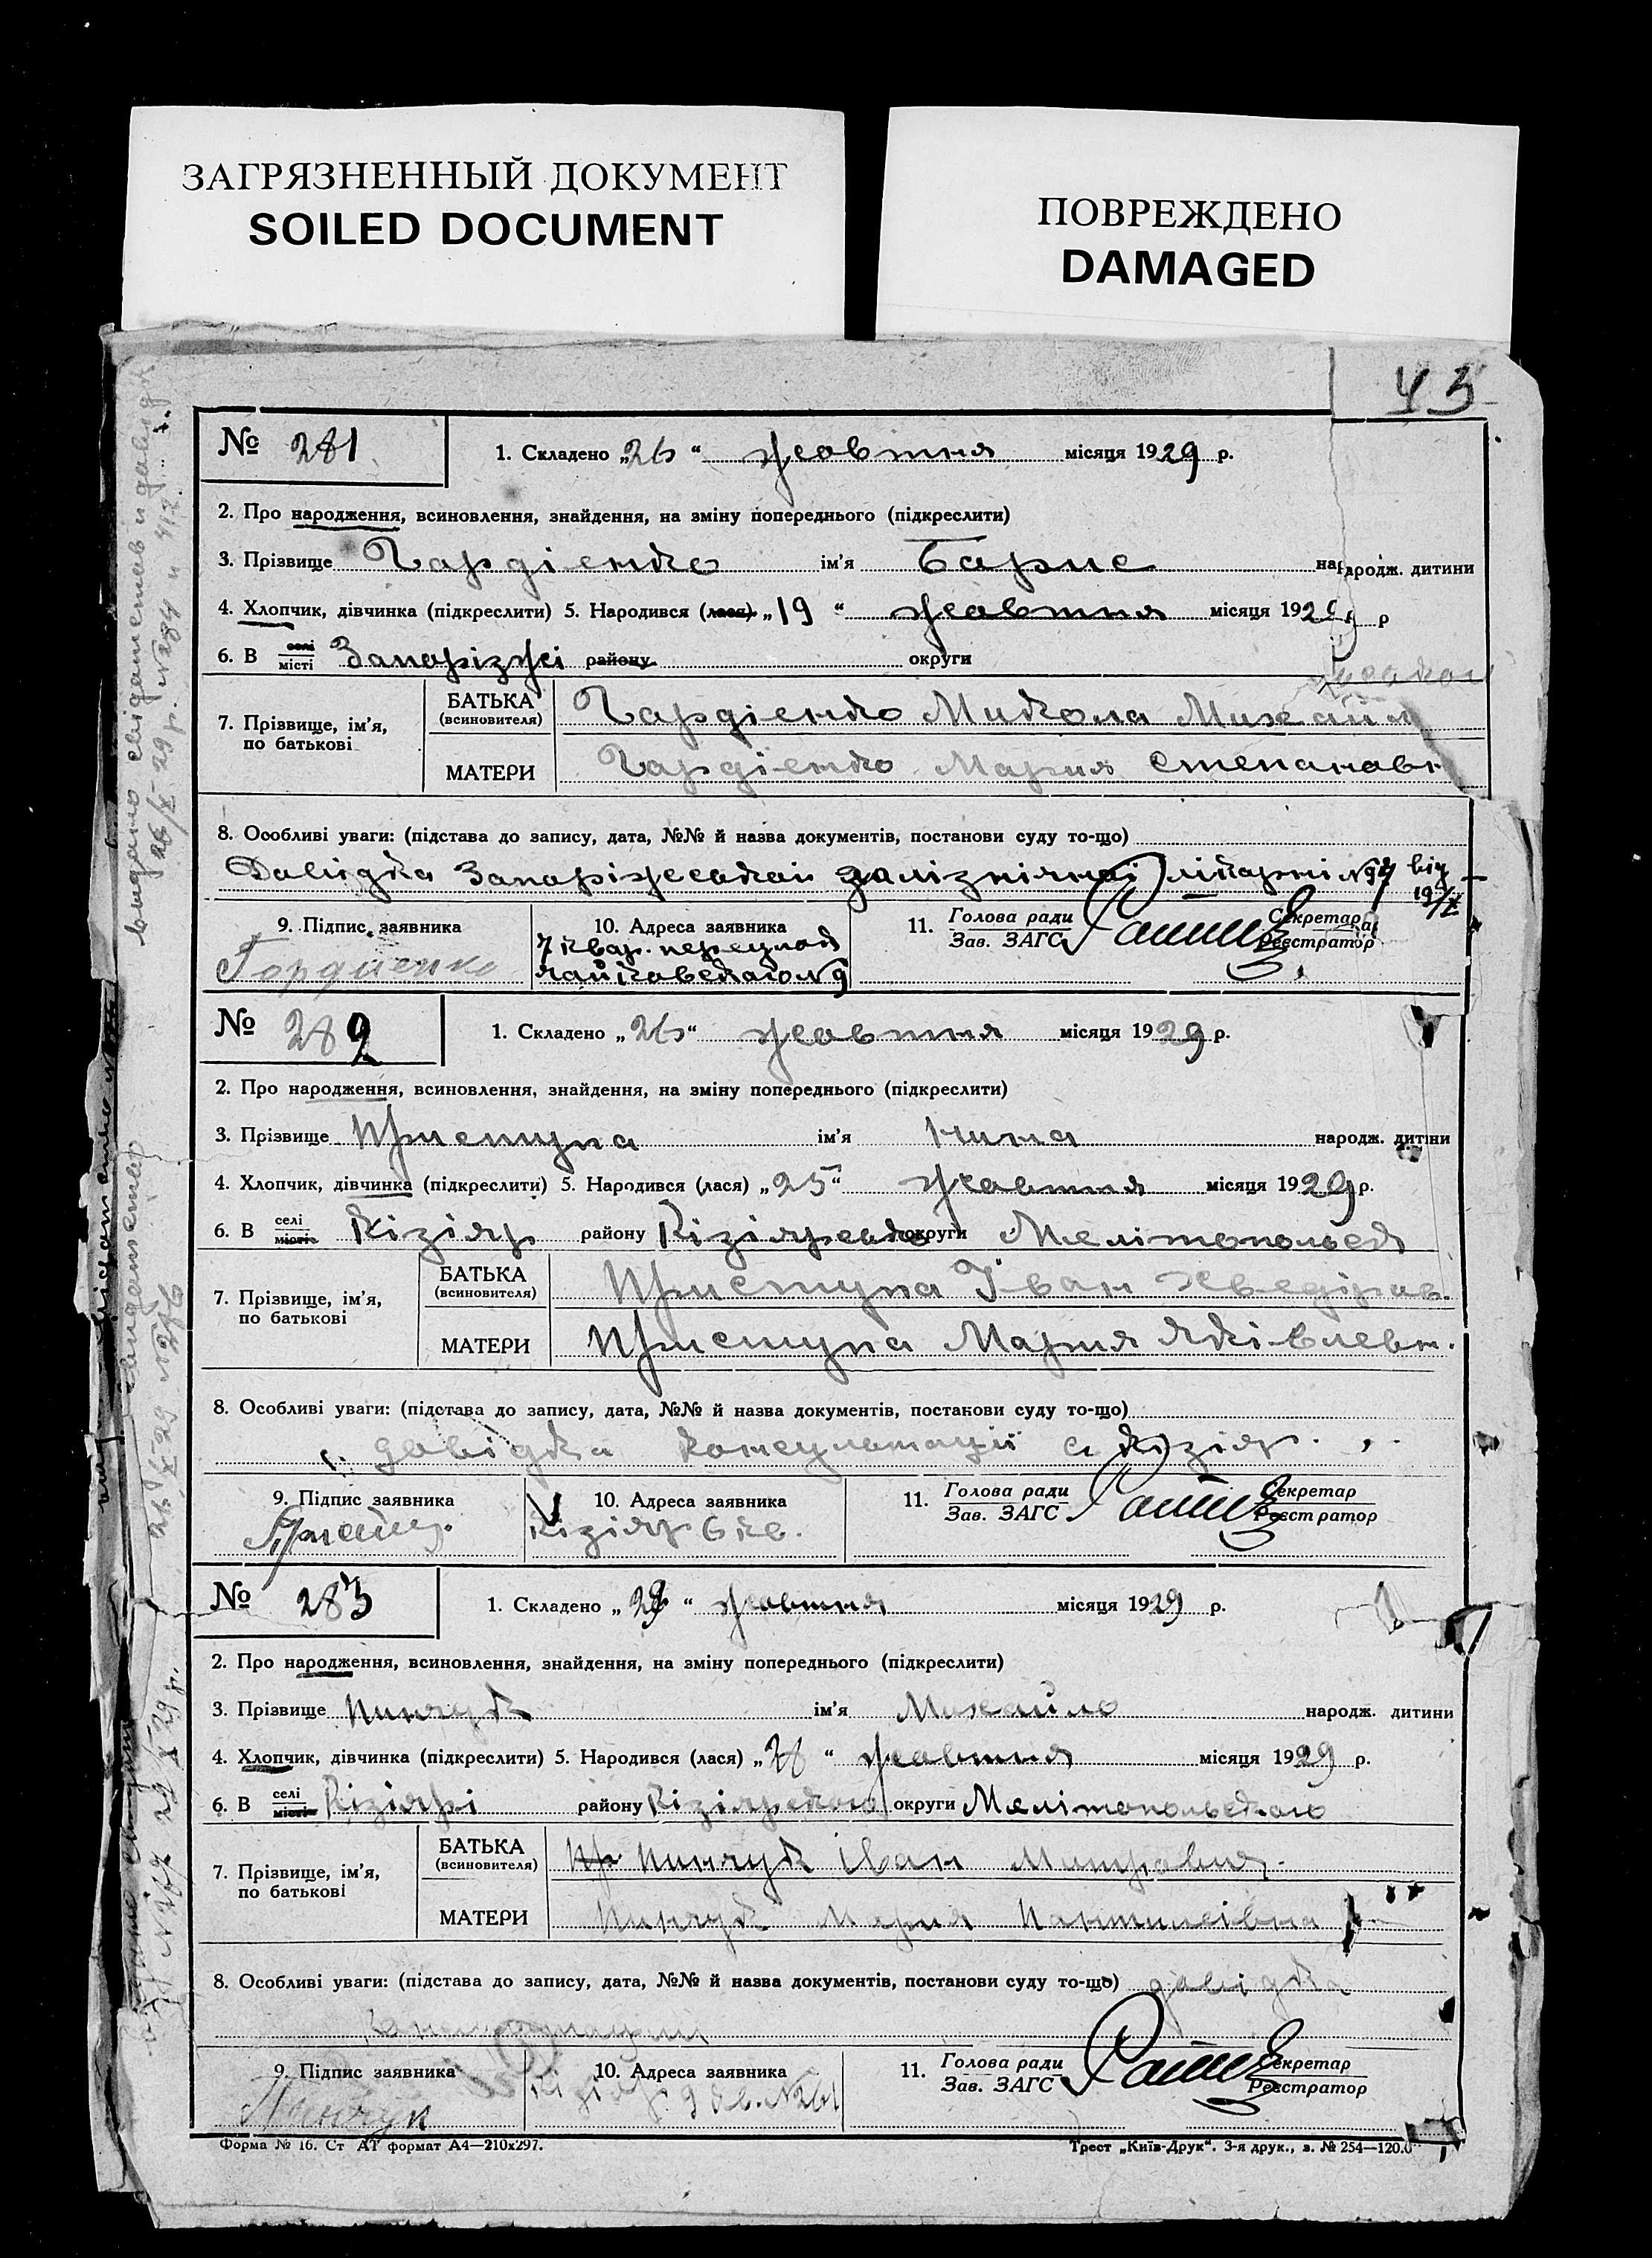 ЗАГРЯЗНЕННЫЙ ДОКУМЕНТ
SOILED DOCUMENT
ПОВРЕЖДЕНО
DAMAGED
43
№ 281
1. Складено „26“ жовтня місяця 1929 р.
2. Про народження, всиновлення, знайдення, на зміну попереднього (підкреслити)
3. Прізвище Гардіенко ім'я Барис народж. дитини
4. Хлопчик, дівчинка (підкреслити) 5. Народився (лася) „19“ жовтня місяця 1929 р
6. В селі місті Запоріжжі району округи
7. Прізвище, ім'я, по батькові
БАТЬКА (всиновителя) Гардіенко Микола Михайл
МАТЕРИ Гардіенко Мария Степанавн
8. Особливі уваги: (підстава до запису, дата, №№ й назва документів, постанови суду то-що)
Давидка Запоріжскаи залізнічнаі лікарні №97 від
19/X
9. Підпис заявника
Гордиенко
10. Адреса заявника
7 квар. переулок
Чайковскаго №9
11. Голова ради Зав. ЗАГС
Секретар Реєстратор
№ 282
1. Складено „26“ жовтня місяця 1929 р.
2. Про народження, всиновлення, знайдення, на зміну попереднього (підкреслити)
3. Прізвище Приступа ім'я Нина народж. дитини
4. Хлопчик, дівчинка (підкреслити) 5. Народився (лася) „25“ жовтня місяця 1929 р.
6. В селі місті Кізіяр району Кізіярсько округи Мелітопольск
7. Прізвище, ім'я, по батькові
БАТЬКА (всиновителя) Приступа Іван Хведірав.
МАТЕРИ Приступа Мария Яківлевн.
8. Особливі уваги: (підстава до запису, дата, №№ й назва документів, постанови суду то-що)
довідка консультаціі с Кізіяр.
9. Підпис заявника
10. Адреса заявника
Кізіяр 6 кв.
11. Голова ради Зав. ЗАГС
Секретар Реєстратор
№ 283
1. Складено „28“ жовтня місяця 1929 р.
2. Про народження, всиновлення, знайдення, на зміну попереднього (підкреслити)
3. Прізвище Пинчук ім'я Михайло народж. дитини
4. Хлопчик, дівчинка (підкреслити) 5. Народився (лася) „28“ жовтня місяця 1929 р.
6. В селі місті Кізіярі району Кізіярского округи Мелітопольского
7. Прізвище, ім'я, по батькові
БАТЬКА (всиновителя) Пр Пинчук Іван Митрович.
МАТЕРИ Пинчук Мария Пантилеівна
8. Особливі уваги: (підстава до запису, дата, №№ й назва документів, постанови суду то-що) довідка
консультации
9. Підпис заявника
Пинчук
10. Адреса заявника
Кізіяр. 9 кв. №261
11. Голова ради Зав. ЗАГС
Секретар Реєстратор
Форма № 16. Ст АТ формат А4—210х297.
Трест „Київ-Друк“. 3-я друк., з. № 254—120.0